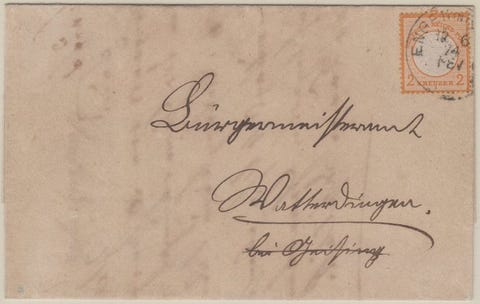 ENGEN
12 6
74
2 KREUZER 2
Bürgermeisteramt
Watterdingen.
bei